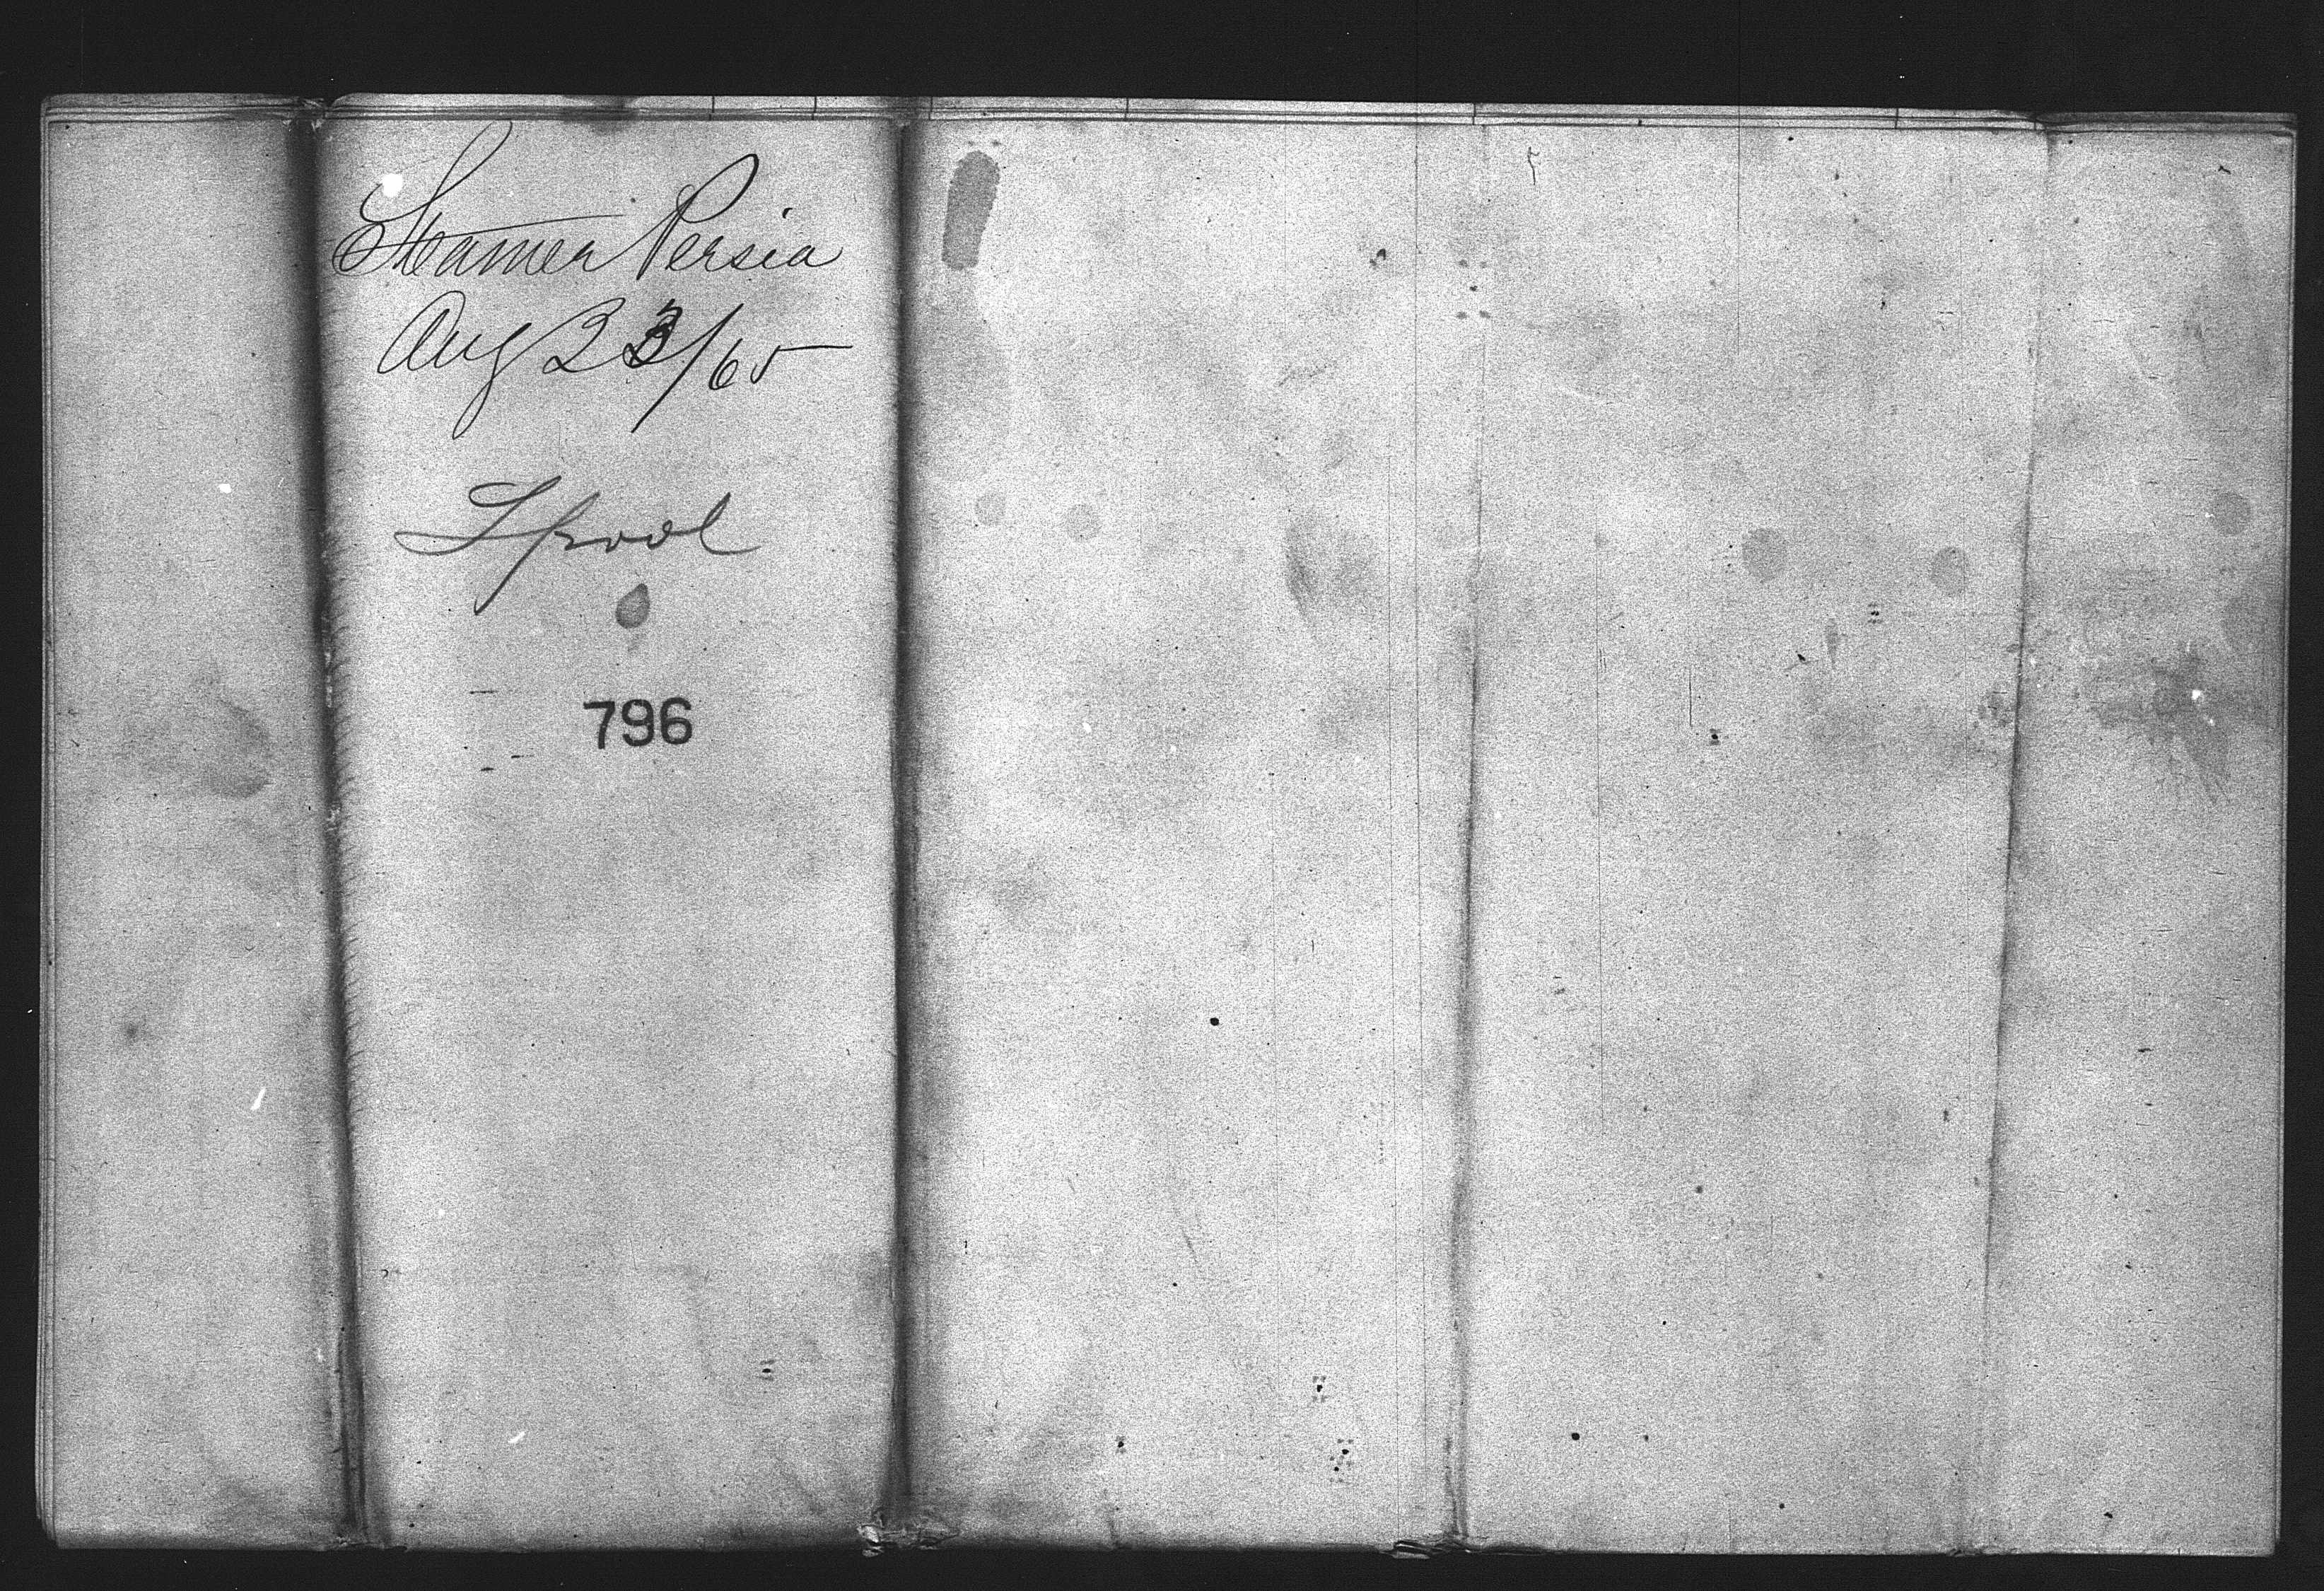 Steamer Persia
Aug 23/65
Lpool
796